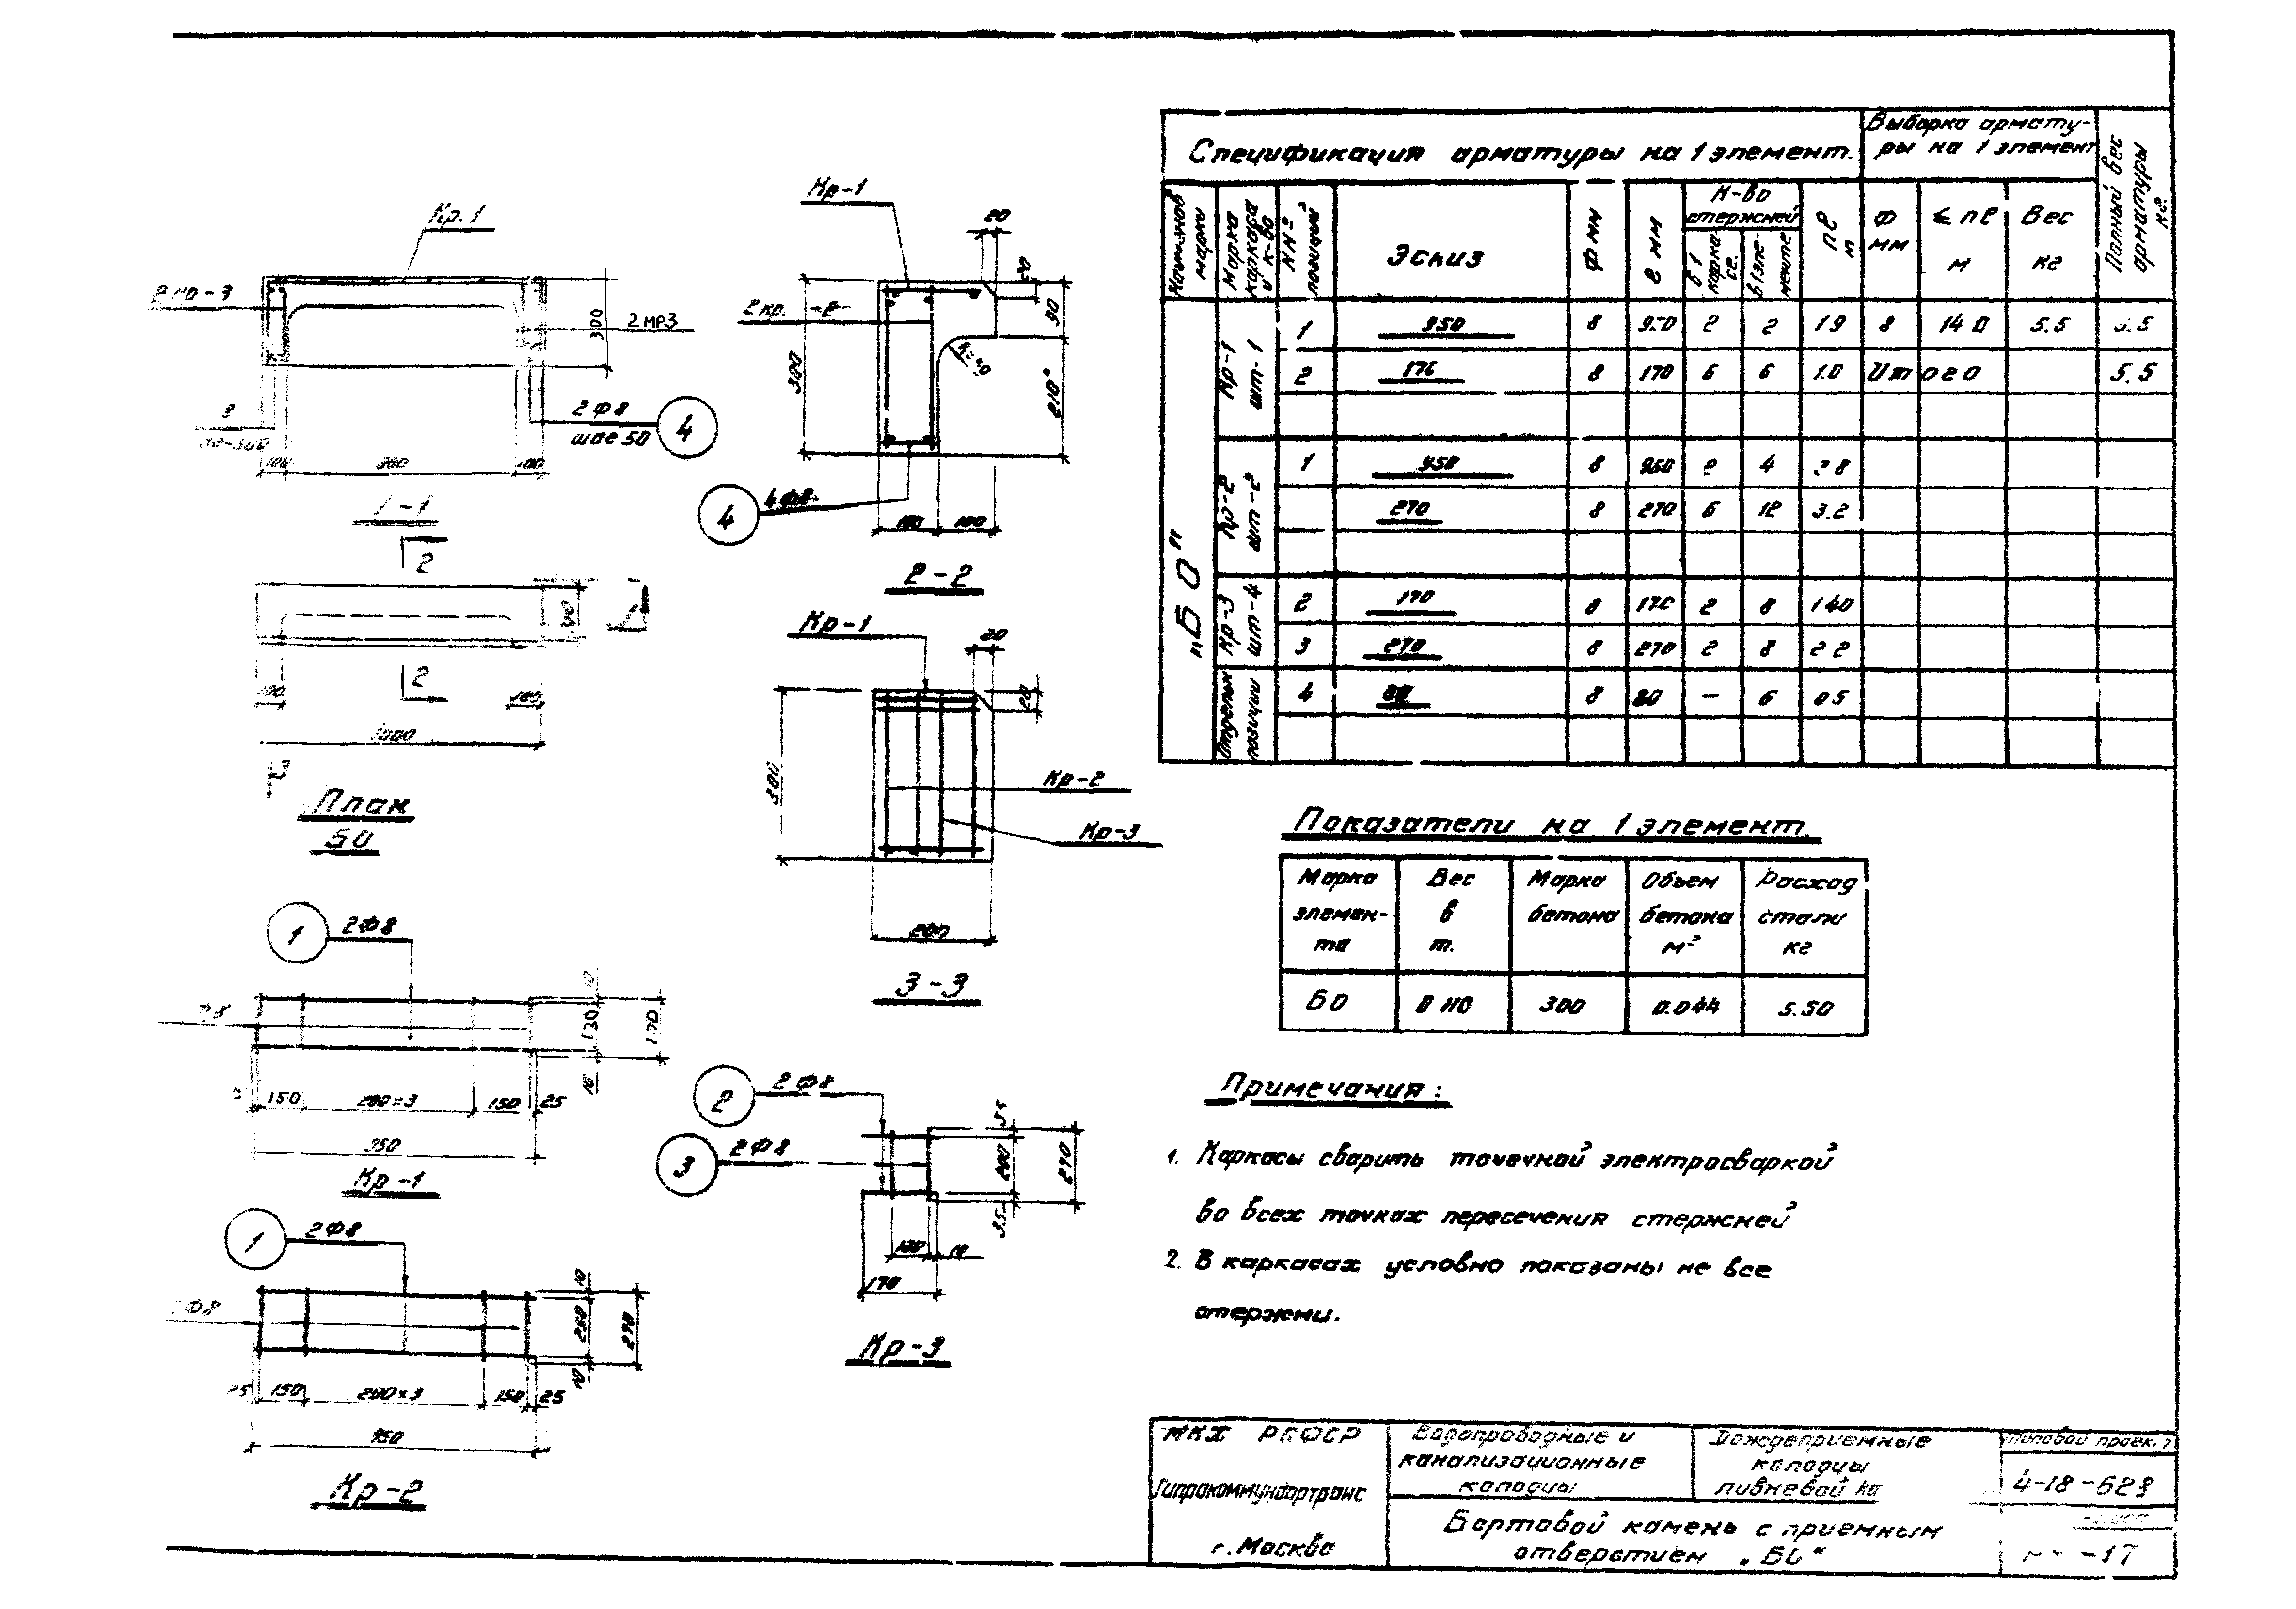 Кр.1
2 МР3
300
2ф8
шаг 50
4
100
1-1
2
План
БО
2
1000
Кр-1
20
20
90
300
210*
4
4ф8
100
100
2-2
Кр-1
20
20
300
Кр-2
Кр-3
200
3-3
1
2ф8
10
130
170
10
150
200×3
150
25
950
Кр-1
1
2ф8
10
250
270
10
25
150
200×3
150
25
950
Кр-2
2
2ф8
3
2ф8
35
200
270
35
100
10
170
Кр-3
Спецификация арматуры на 1 элемент.
Выборка арматуры на 1 элемент
Полный вес арматуры кг.
Наименов марки
Марка каркаса и к-во
NNº позиций
Эскиз
ф мм
ℓ мм
К-во стержней
в 1 каркасе.
в 1 элементе
пℓ м
Ф мм
Σ пℓ м
Вес кг
„БО"
Кр-1 шт-1
1 950 8 950 2 2 1.9 8 14.0 5.5 5.5
2 170 8 170 6 6 1.0 Итого 5.5
Кр-2 шт-2
1 950 8 950 2 4 3.8
270 8 270 6 12 3.2
Кр-3 шт-4
2 170 8 170 2 8 1.40
3 270 8 270 2 8 2.2
Отдельн позиции
4 80 8 80 — 6 0.5
Показатели на 1 элемент.
Марка элемента
Вес в т.
Марка бетона
Объем бетона м³
Расход стали кг
БО 0.110 300 0.044 5.50
Примечания:
1. Каркасы сварить точечной электросваркой
во всех точках пересечения стержней
2. В каркасах условно показаны не все
стержни.
МКХ РСФСР
Гипрокоммундортранс
г. Москва
Водопроводные и
канализационные
колодцы
Дождеприемные
колодцы
ливневой ка
Типовой проект
4-18-628
Бортовой камень с приемным
отверстием „БО"
Лист
-17